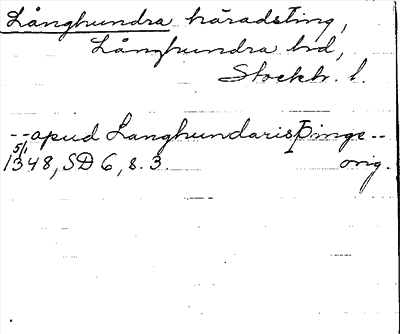 Långhundra häradsting,
Långhundra hd,
Stockh. l.
--apud Langhundarisþinge--
5/1
1348, SD 6, s. 3. orig.